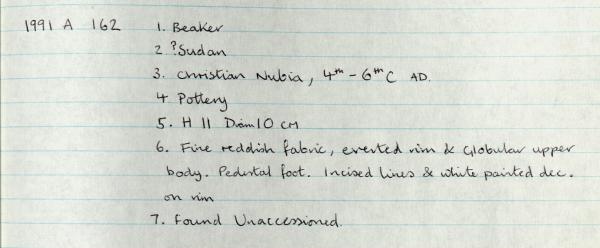 1991 A 162 1. Beaker
2 ?Sudan
3. Christian Nubia, 4th - 6th C AD.
4 Pottery
5. H 11 Diam 10 CM
6. Fine reddish fabric, everted rim & Globular upper
body. Pedestal foot. Incised lines & white painted dec.
on rim
7. Found Unaccessioned.